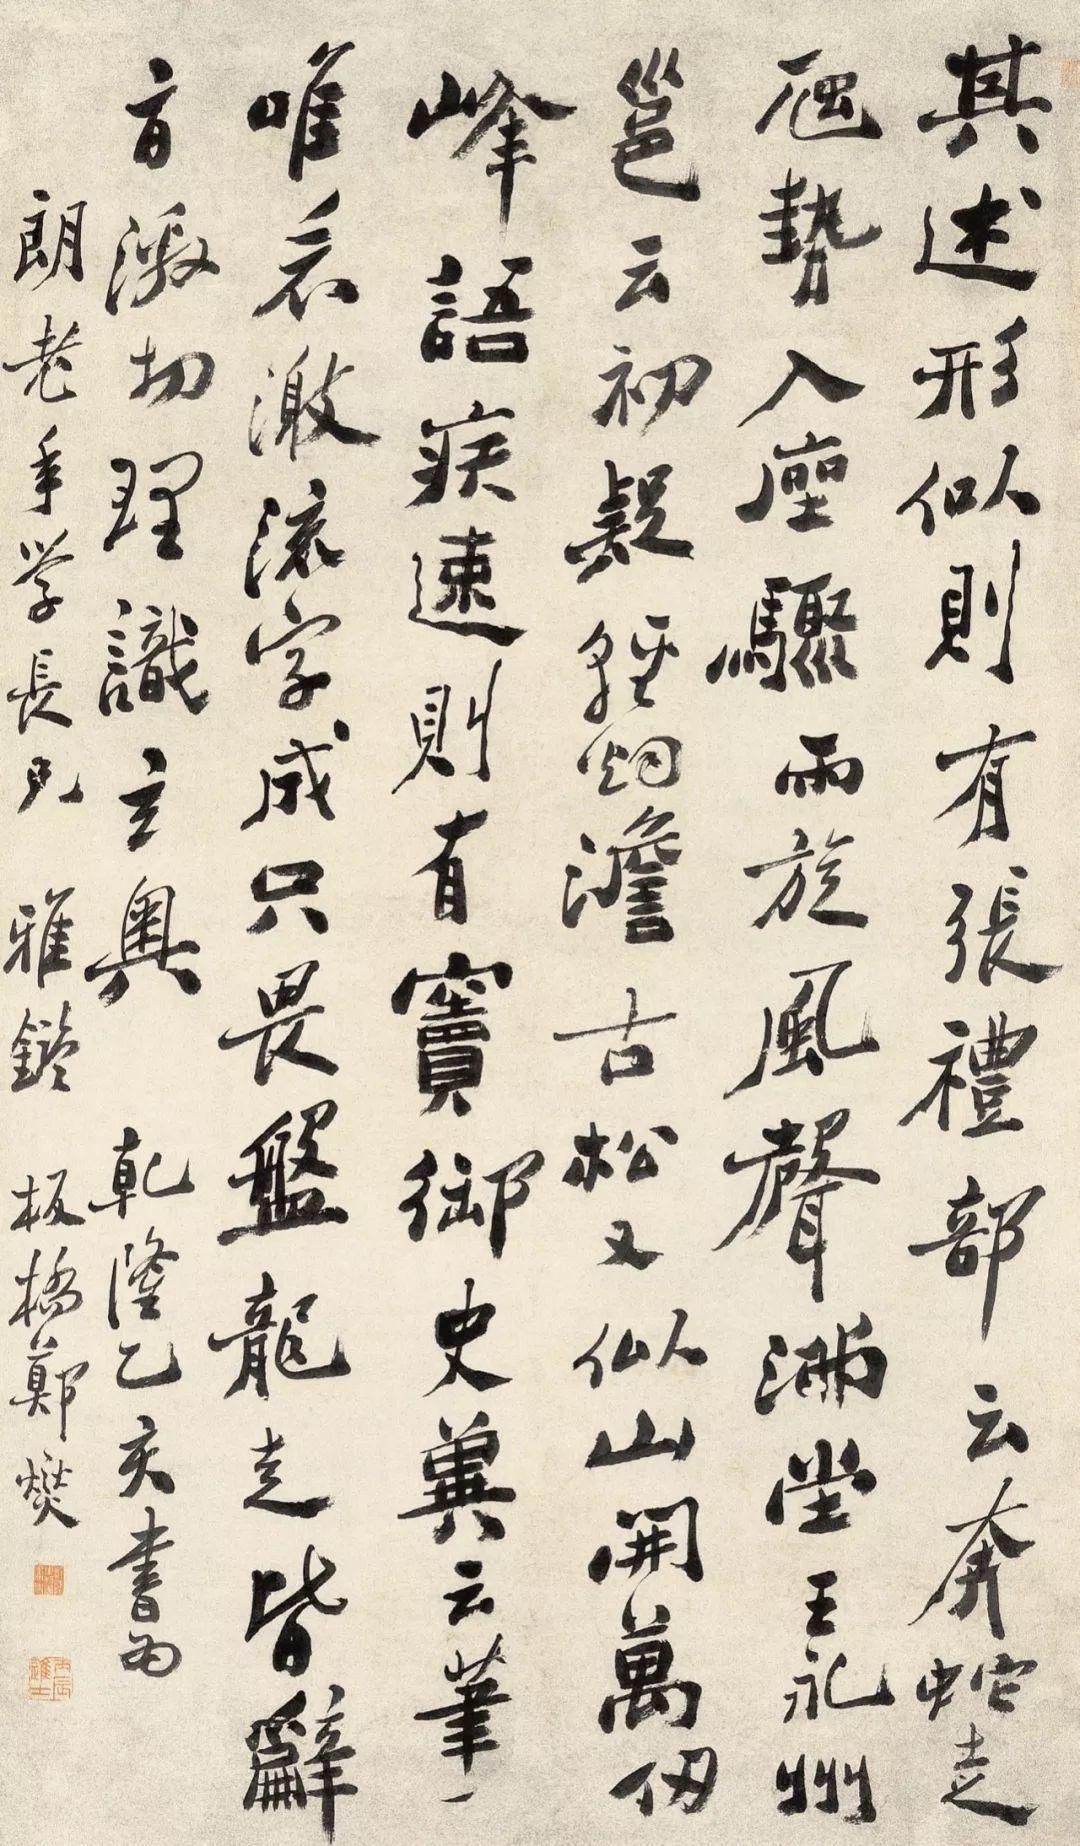 其述形似則有張禮部云奔蛇走
虺勢入座驟雨旋風聲滿堂王永州
邕云初疑輕烟澹古松又似山開萬仞
峰語疾速則有竇御史冀云筆
唯看激流字成只畏盤龍走皆辭
旨激切理識玄奧 乾隆乙亥書為
朗老年學長兄 雅鑒 板橋鄭燮
丙辰進士